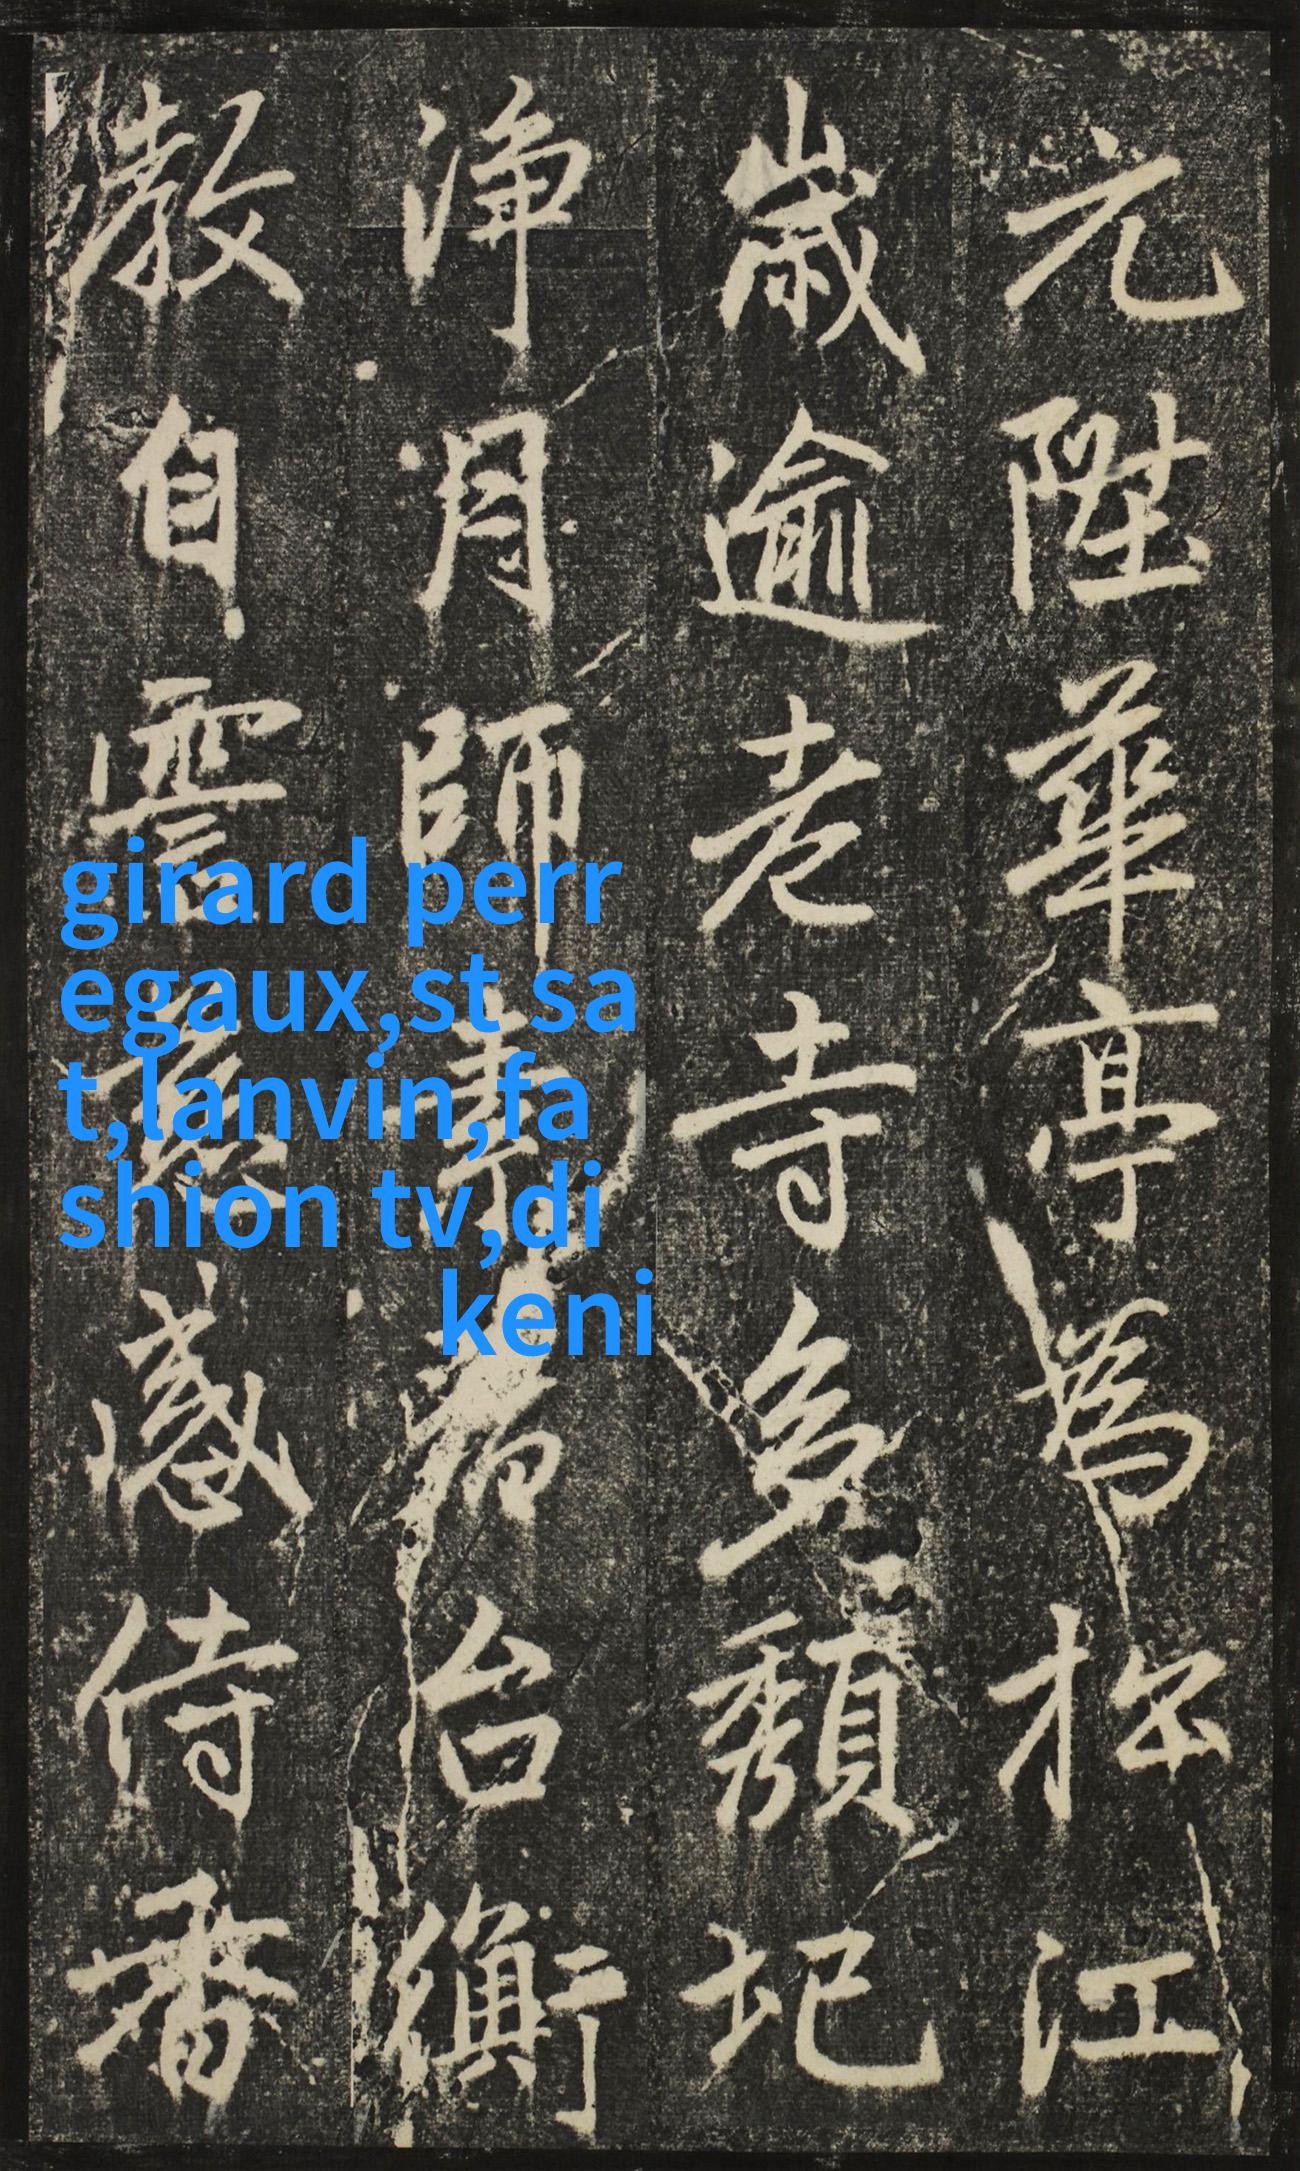 元陞華亭為松江
歲逾老寺多頹圮
淨月師台衡
教自霅慈感侍番
girard perr
egaux,st sa
t,lanvin,fa
shion tv,di
keni